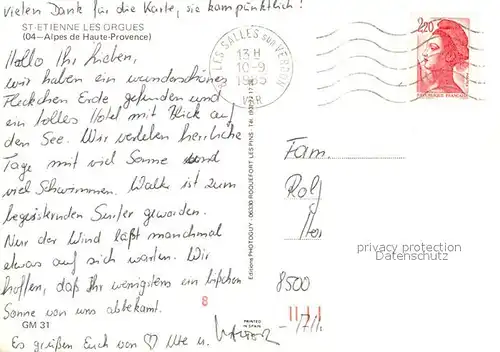 vielen Dank für die Karte, sie kam pünktlich!
ST-ETIENNE LES ORGUES
(04-Alpes de Haute-Provence)
Hallo Ihr Lieben,
wir haben ein wunderschönes
Fleckchen Erde gefunden und
ein tolles Hotel mit Blick auf
den See. Wir verleben herrliche
Tage mit viel Sonne und
viel Schwimmen. Walter ist zum
begeisternden Surfer geworden.
Nur der Wind läßt manchmal
etwas auf sich warten. Wir
hoffen, daß Ihr wenigstens ein bißchen
Sonne von uns abbekamt.
GM 31
Es grüßen Euch von ♡ Ute u. Walter
SALLES SUR VERDON
13 H
10-9
1985
VAR
2,20
REPUBLIQUE FRANÇAISE
Editions PHOTOGUY - 06330 ROQUEFORT LES PINS
Fam.
Rolf
privacy protection
Watermark.IT
8500
8
PRINTED
IN SPAIN